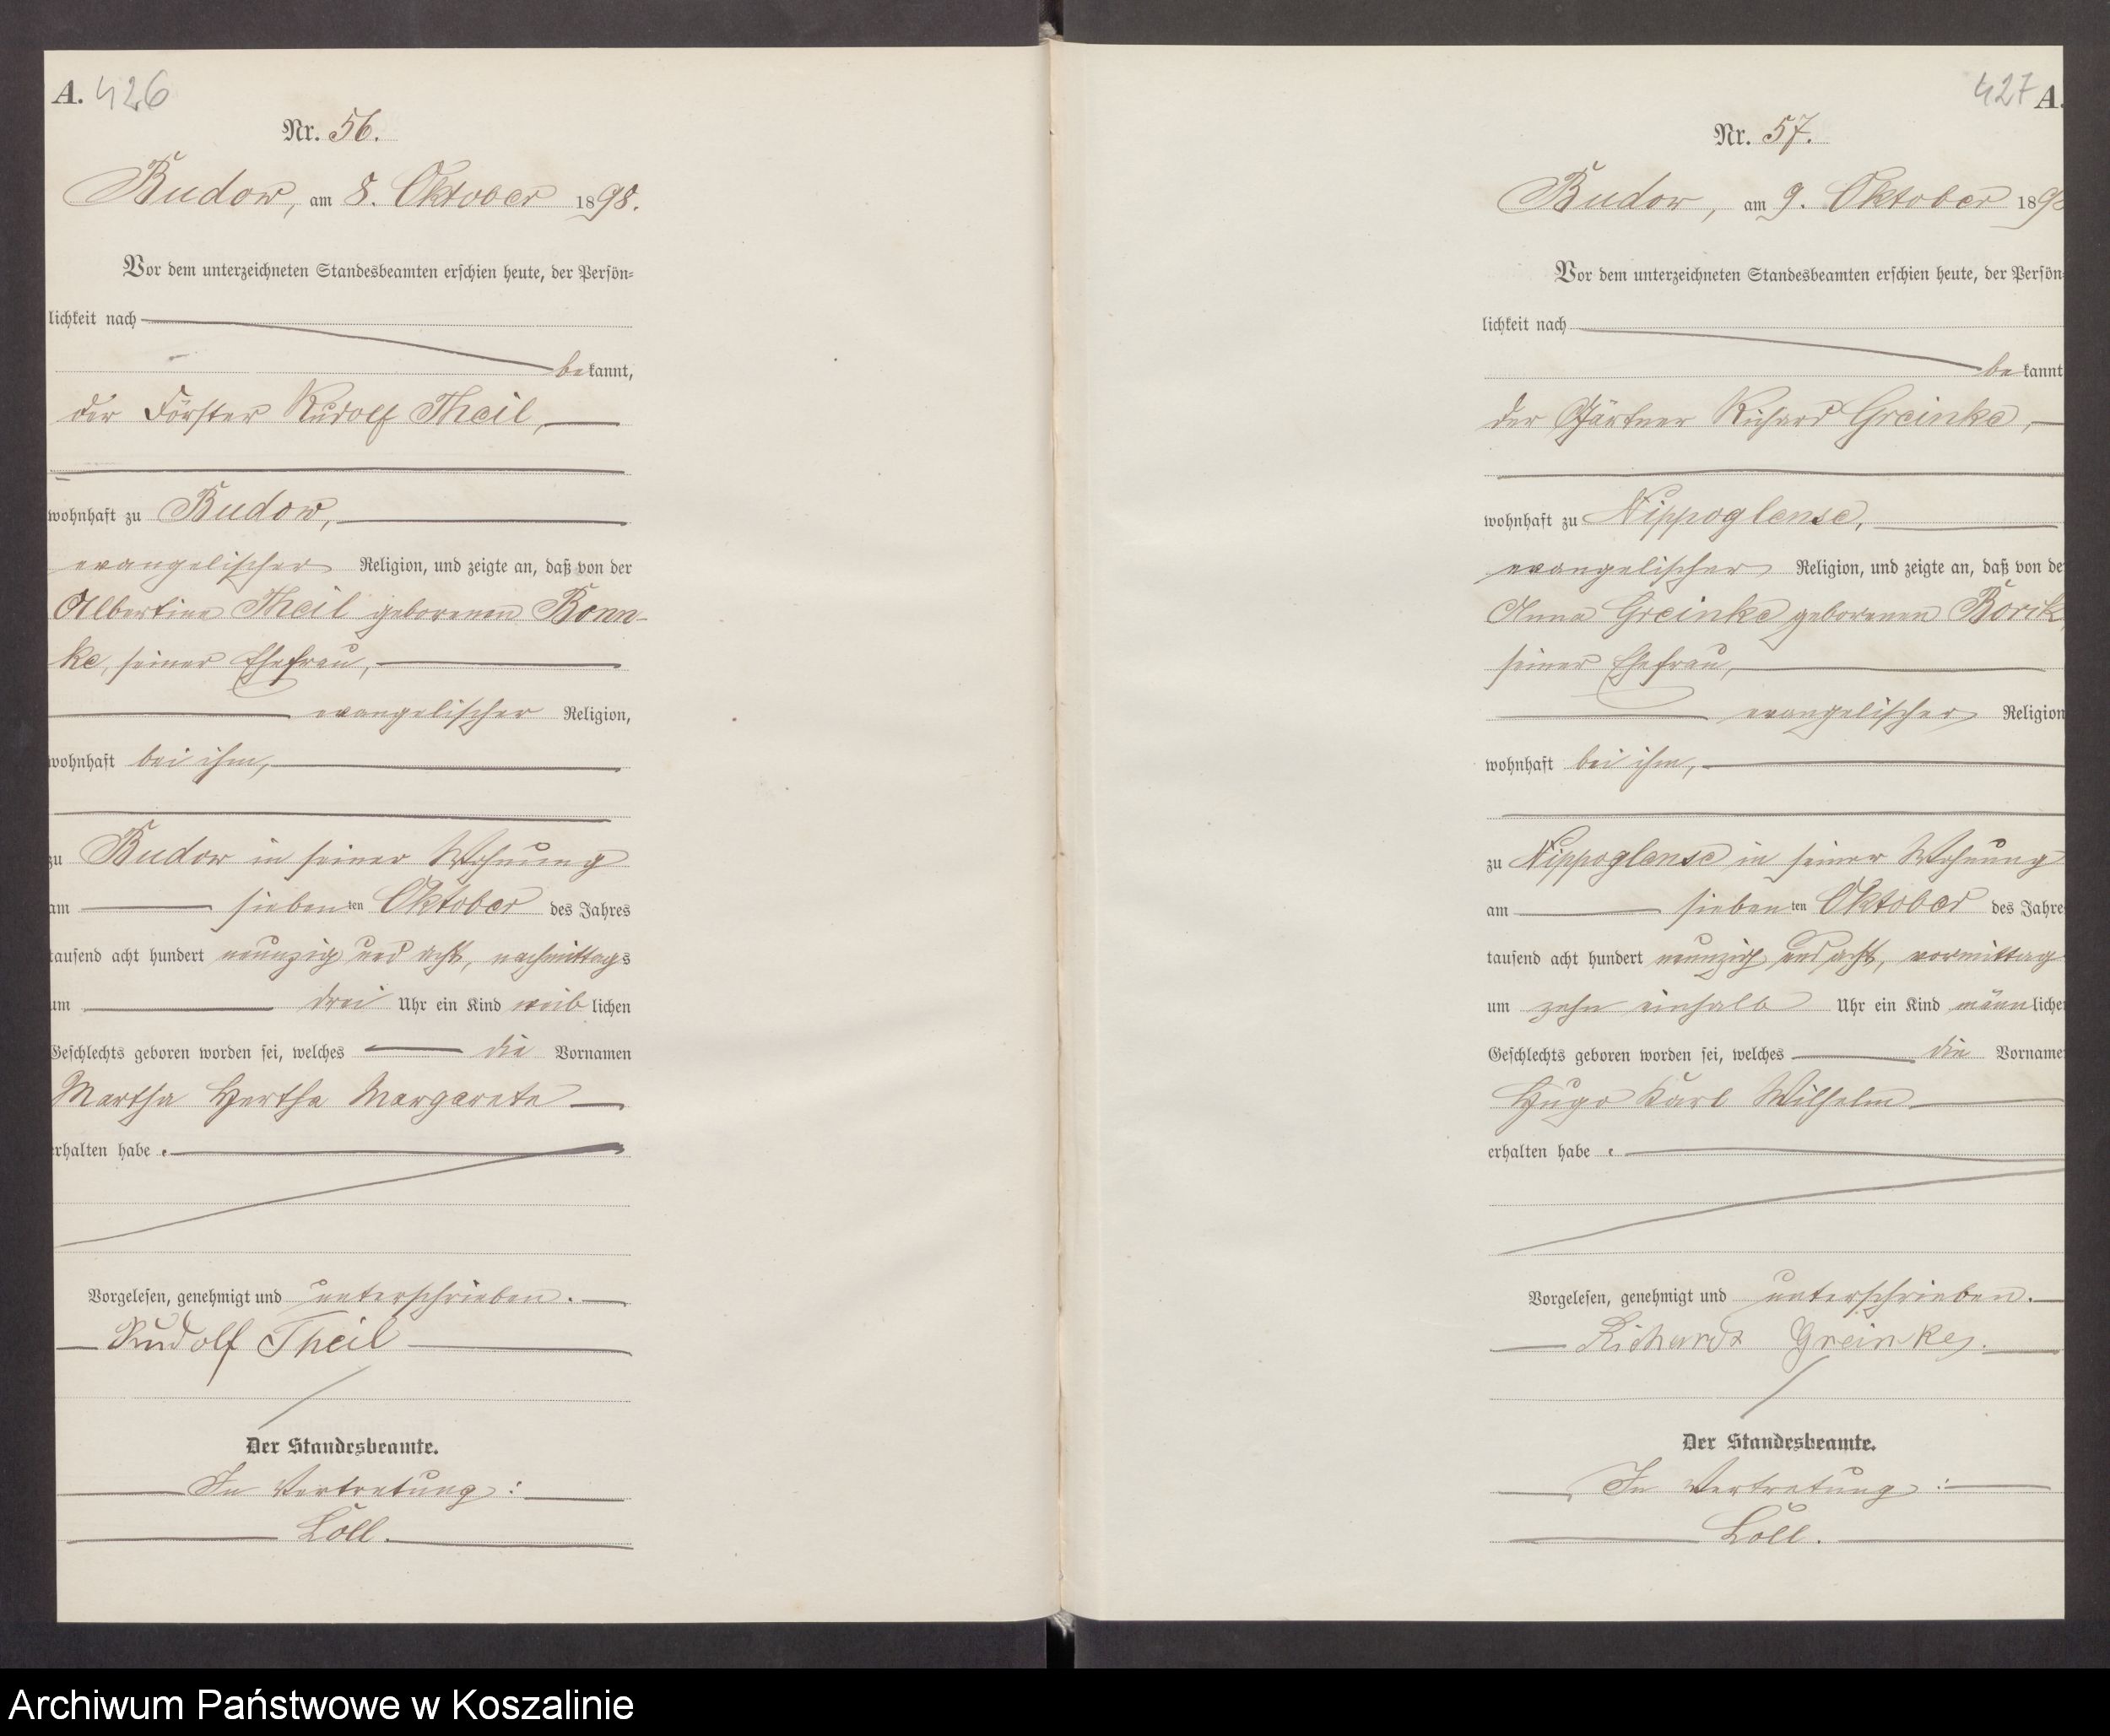 A. 426
Nr. 56.
Budow, am 8. Oktober 1898.
Vor dem unterzeichneten Standesbeamten erschien heute, der Persön-
lichkeit nach
bekannt,
der Förster Rudolf Theil,
wohnhaft zu Budow,
evangelischer Religion, und zeigte an, daß von der
Albertine Theil geborenen Bonn-
ke, seiner Ehefrau,
evangelischer Religion,
wohnhaft bei ihm,
zu Budow in seiner Wohnung
am siebenten Oktober des Jahres
tausend acht hundert neunzig und acht, nachmittags
um drei Uhr ein Kind weiblichen
Geschlechts geboren worden sei, welches die Vornamen
Martha Hertha Margarete
erhalten habe.
Vorgelesen, genehmigt und unterschrieben.
Rudolf Theil
Der Standesbeamte.
In Vertretung:
Löll.
427 A.
Nr. 57.
Budow, am 9. Oktober 189
Vor dem unterzeichneten Standesbeamten erschien heute, der Persön-
lichkeit nach
bekannt
der Gärtner Richard Greinke,
wohnhaft zu Nippoglense,
evangelischer Religion, und zeigte an, daß von de
Anna Greinke geborenen Borik
seiner Ehefrau,
evangelischer Religion
wohnhaft bei ihm,
zu Nippoglense in seiner Wohnung
am siebenten Oktober des Jahre
tausend acht hundert neunzig und acht, vormittag
um zehn einhalb Uhr ein Kind männliche
Geschlechts geboren worden sei, welches die Vorname
Hugo Karl Wilhelm
erhalten habe.
Vorgelesen, genehmigt und unterschrieben.
Richard Greinke.
Der Standesbeamte.
In Vertretung:
Löll.
Archiwum Państwowe w Koszalinie